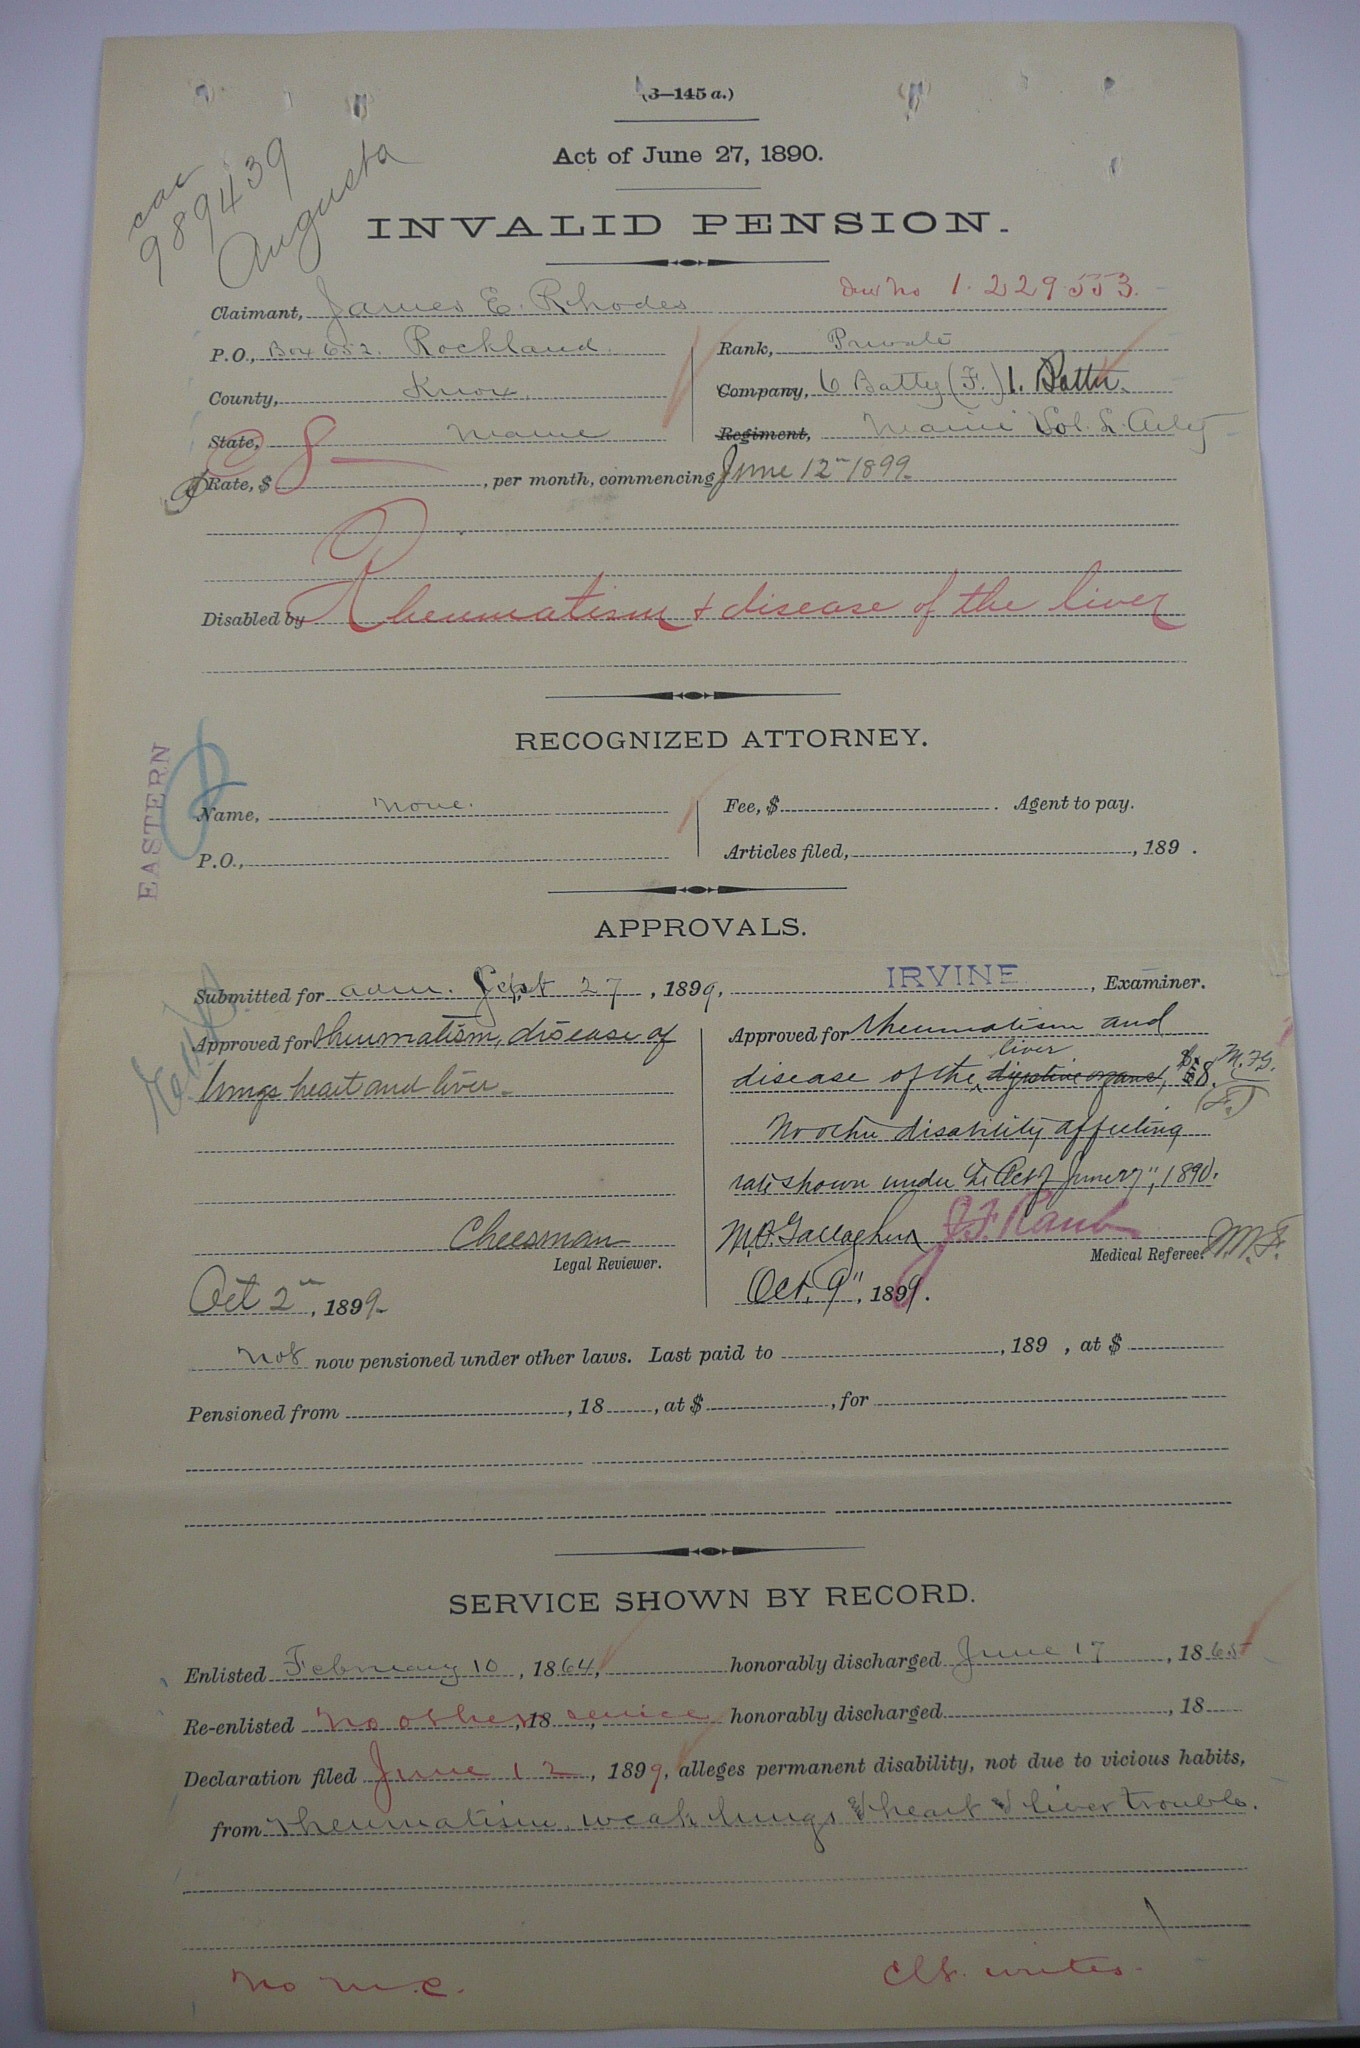 (3—145 a.)
Act of June 27, 1890.
989439
Augusta
INVALID PENSION.
No 1.229.553.
Claimant, James E. Rhodes
P.O., Box 652. Rockland.
Rank, Private
County, Knox.
Company, 6 Batty (F.) 1. Battn.
State, Maine
Regiment, Maine Vol. L. Arty
Rate, $ 8 — , per month, commencing June 12" 1899.
Disabled by Rheumatism & disease of the liver
RECOGNIZED ATTORNEY.
EASTERN
Name, None.
Fee, $ . Agent to pay.
P.O.,
Articles filed, , 189 .
APPROVALS.
Submitted for adm. Sept 27, 1899, IRVINE , Examiner.
Approved for rheumatism, disease of
lungs heart and liver.
Approved for rheumatism and
liver
disease of the digestive organs, $8. M.F.G.
No other disability affecting
rate shown under the Act of June 27", 1890.
Cheesman
Legal Reviewer.
M.D. Gallagher J.F. Raub
Medical Referee.
Oct 2", 1899.
Oct. 9", 1899.
Not now pensioned under other laws. Last paid to , 189 , at $
Pensioned from , 18 , at $ , for
SERVICE SHOWN BY RECORD.
Enlisted February 10, 1864, honorably discharged June 17, 1865
Re-enlisted No other, 18 , service honorably discharged , 18
Declaration filed June 12, 1899, alleges permanent disability, not due to vicious habits,
from rheumatism, weak lungs & heart & liver trouble.
No M.C.
Clt. writes.